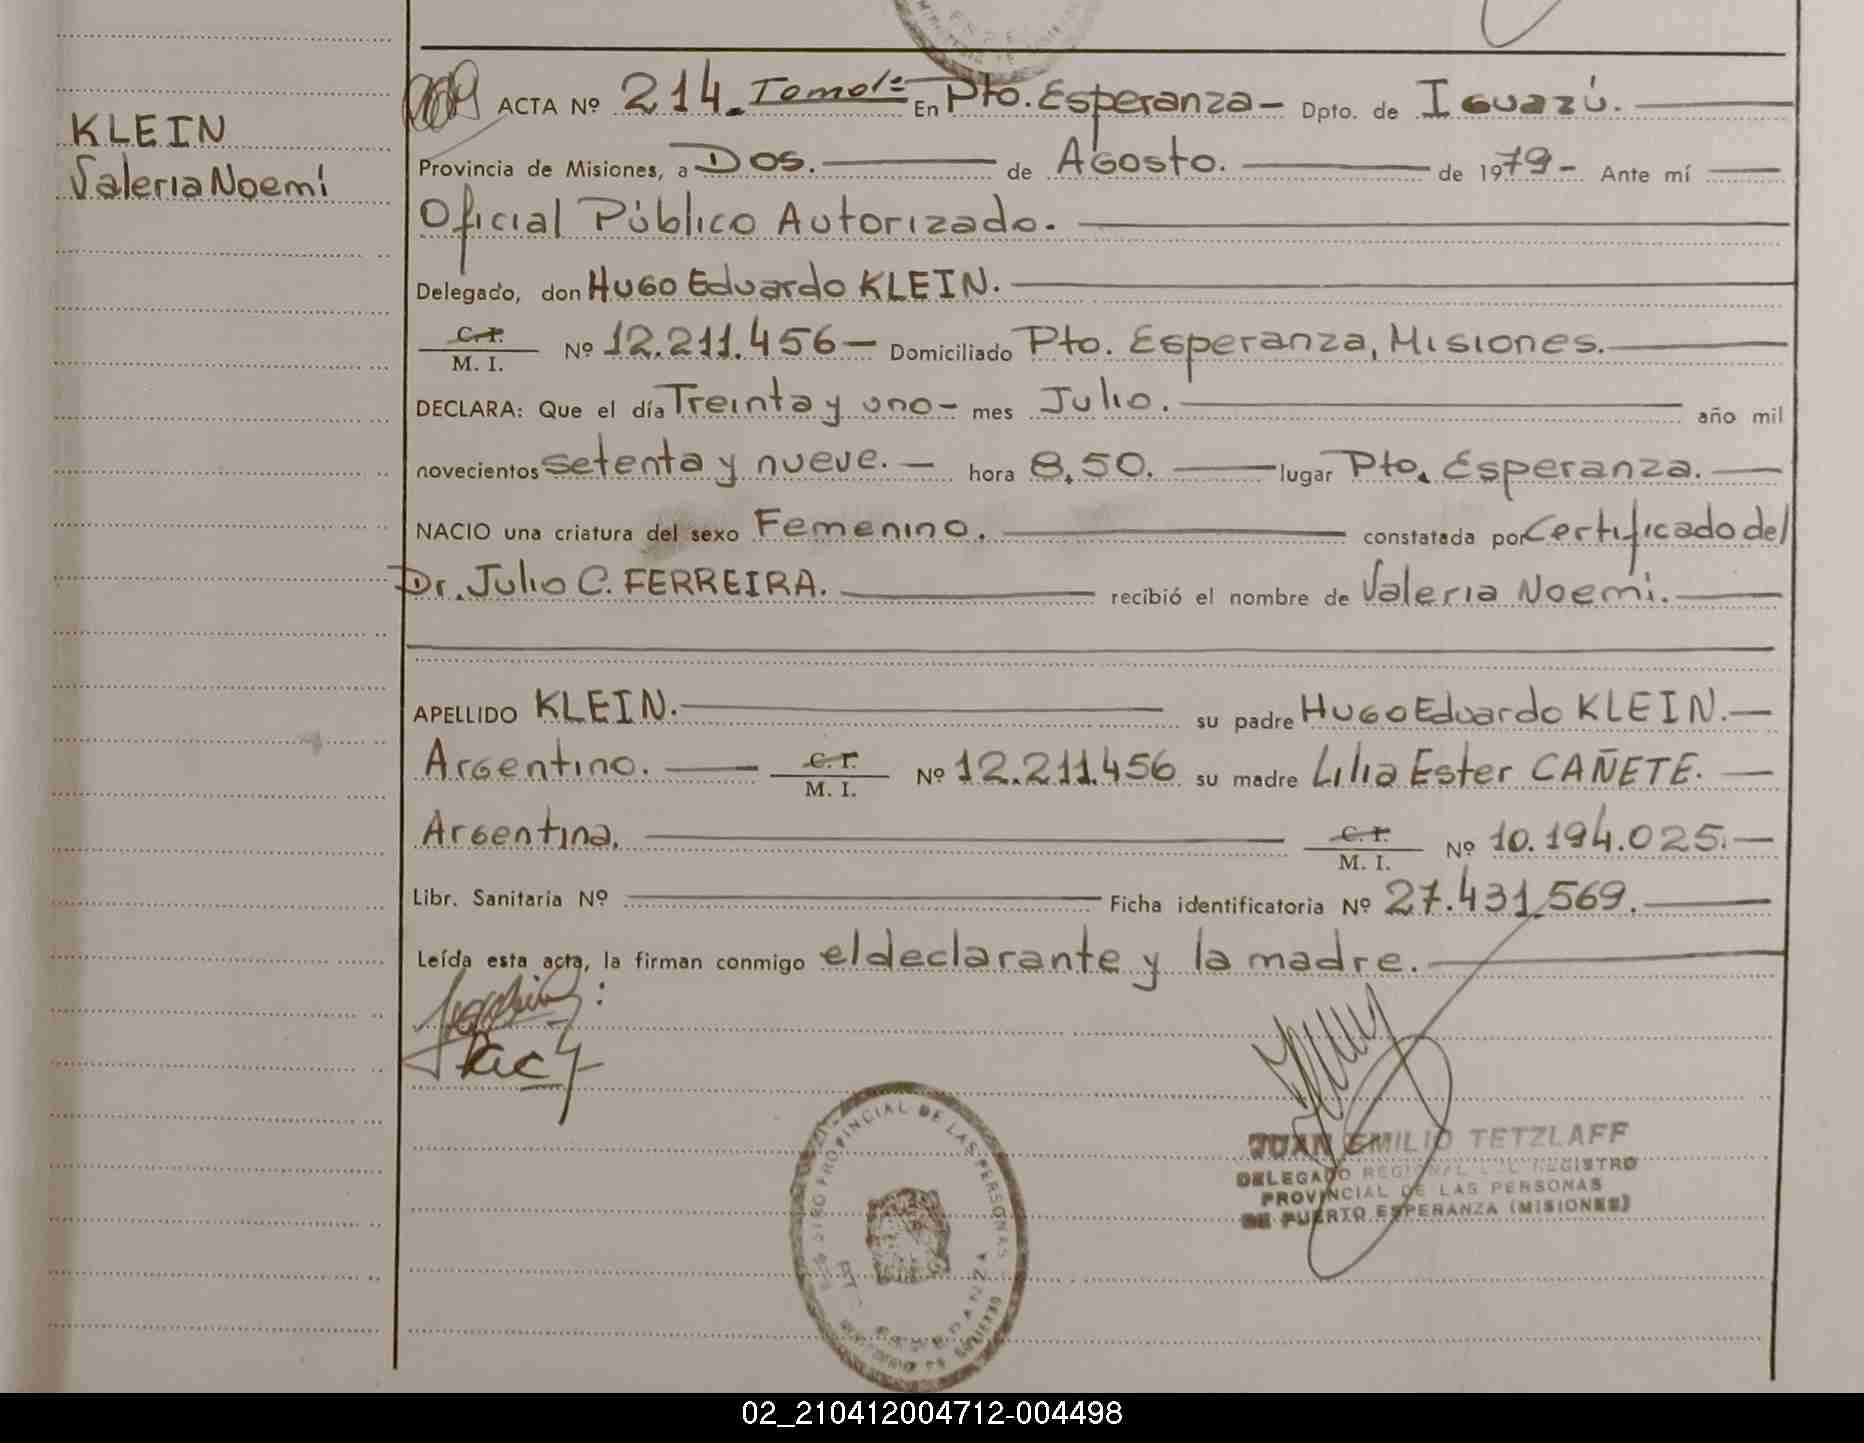 KLEIN
Valeria Noemí
ACTA Nº 214. Tomo 1º En Pto. Esperanza - Dpto. de Iguazú.
Provincia de Misiones, a Dos. de Agosto. de 1979 - Ante mí
Oficial Público Autorizado.
Delegado, don Hugo Eduardo KLEIN.
C. I.
M. I. Nº 12.211.456 - Domiciliado Pto. Esperanza, Misiones.
DECLARA: Que el día Treinta y uno - mes Julio. año mil
novecientos setenta y nueve. - hora 8,50. lugar Pto. Esperanza.
NACIO una criatura del sexo Femenino. constatada por Certificado del
Dr. Julio C. FERREIRA. recibió el nombre de Valeria Noemí.
APELLIDO KLEIN. su padre Hugo Eduardo KLEIN. -
Argentino. C. I. M. I. Nº 12.211.456 su madre Lilia Ester CAÑETE.
Argentina. C. I. M. I. Nº 10.194.025. -
Libr. Sanitaria Nº Ficha identificatoria Nº 27.431.569.
Leída esta acta, la firman conmigo el declarante y la madre.
JUAN EMILIO TETZLAFF
DELEGADO REGIONAL DEL REGISTRO
PROVINCIAL DE LAS PERSONAS
DE PUERTO ESPERANZA (MISIONES)
REGISTRO PROVINCIAL DE LAS PERSONAS
ESPERANZA
MINISTERIO DE GOBIERNO
02_210412004712-004498